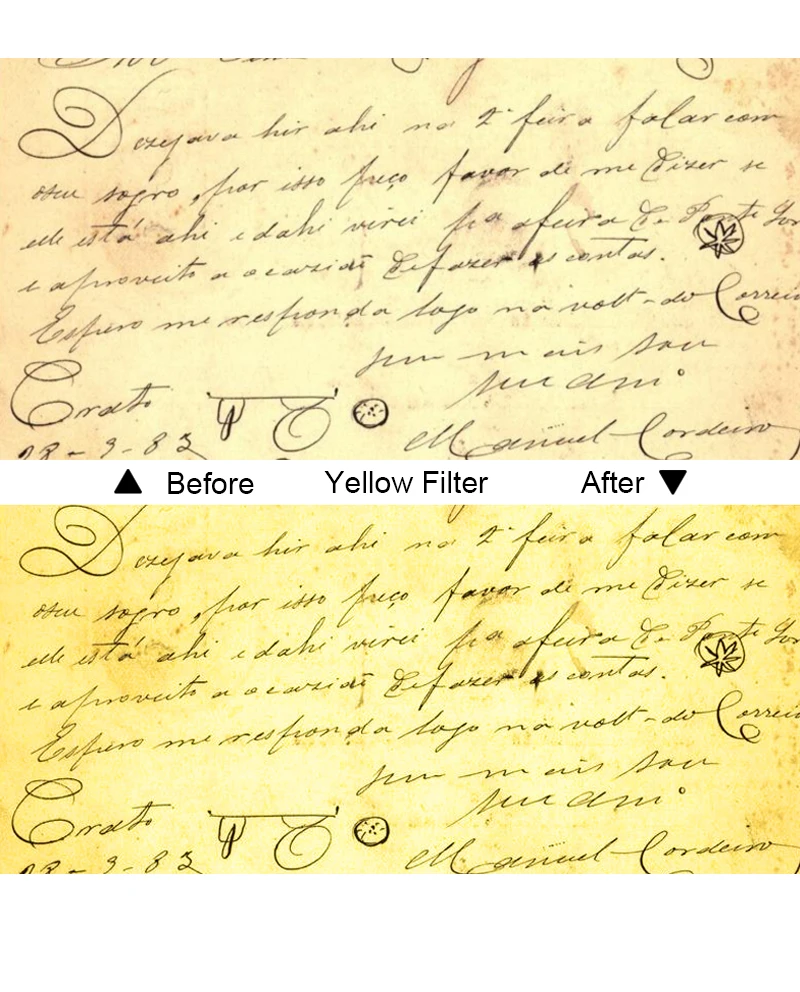 Dezejava hir ahi na 2ª feira falar com
seu sogro, por isso peço favor de me dizer se
elle está ahi e dahi virei pa afeira de Ponte
e aproveito a ocazião de fazer as contas.
Espero me responda logo na volt-do Correio
sem mais sou
Crato
28-9-83
Manuel Cordeiro
▲ Before Yellow Filter After ▼
Dezejava hir ahi na 2ª feira falar com
seu sogro, por isso peço favor de me dizer se
elle está ahi e dahi virei pa afeira de Ponte
e aproveito a ocazião de fazer as contas.
Espero me responda logo na volt-do Correio
sem mais sou
Crato
28-9-83
Manuel Cordeiro